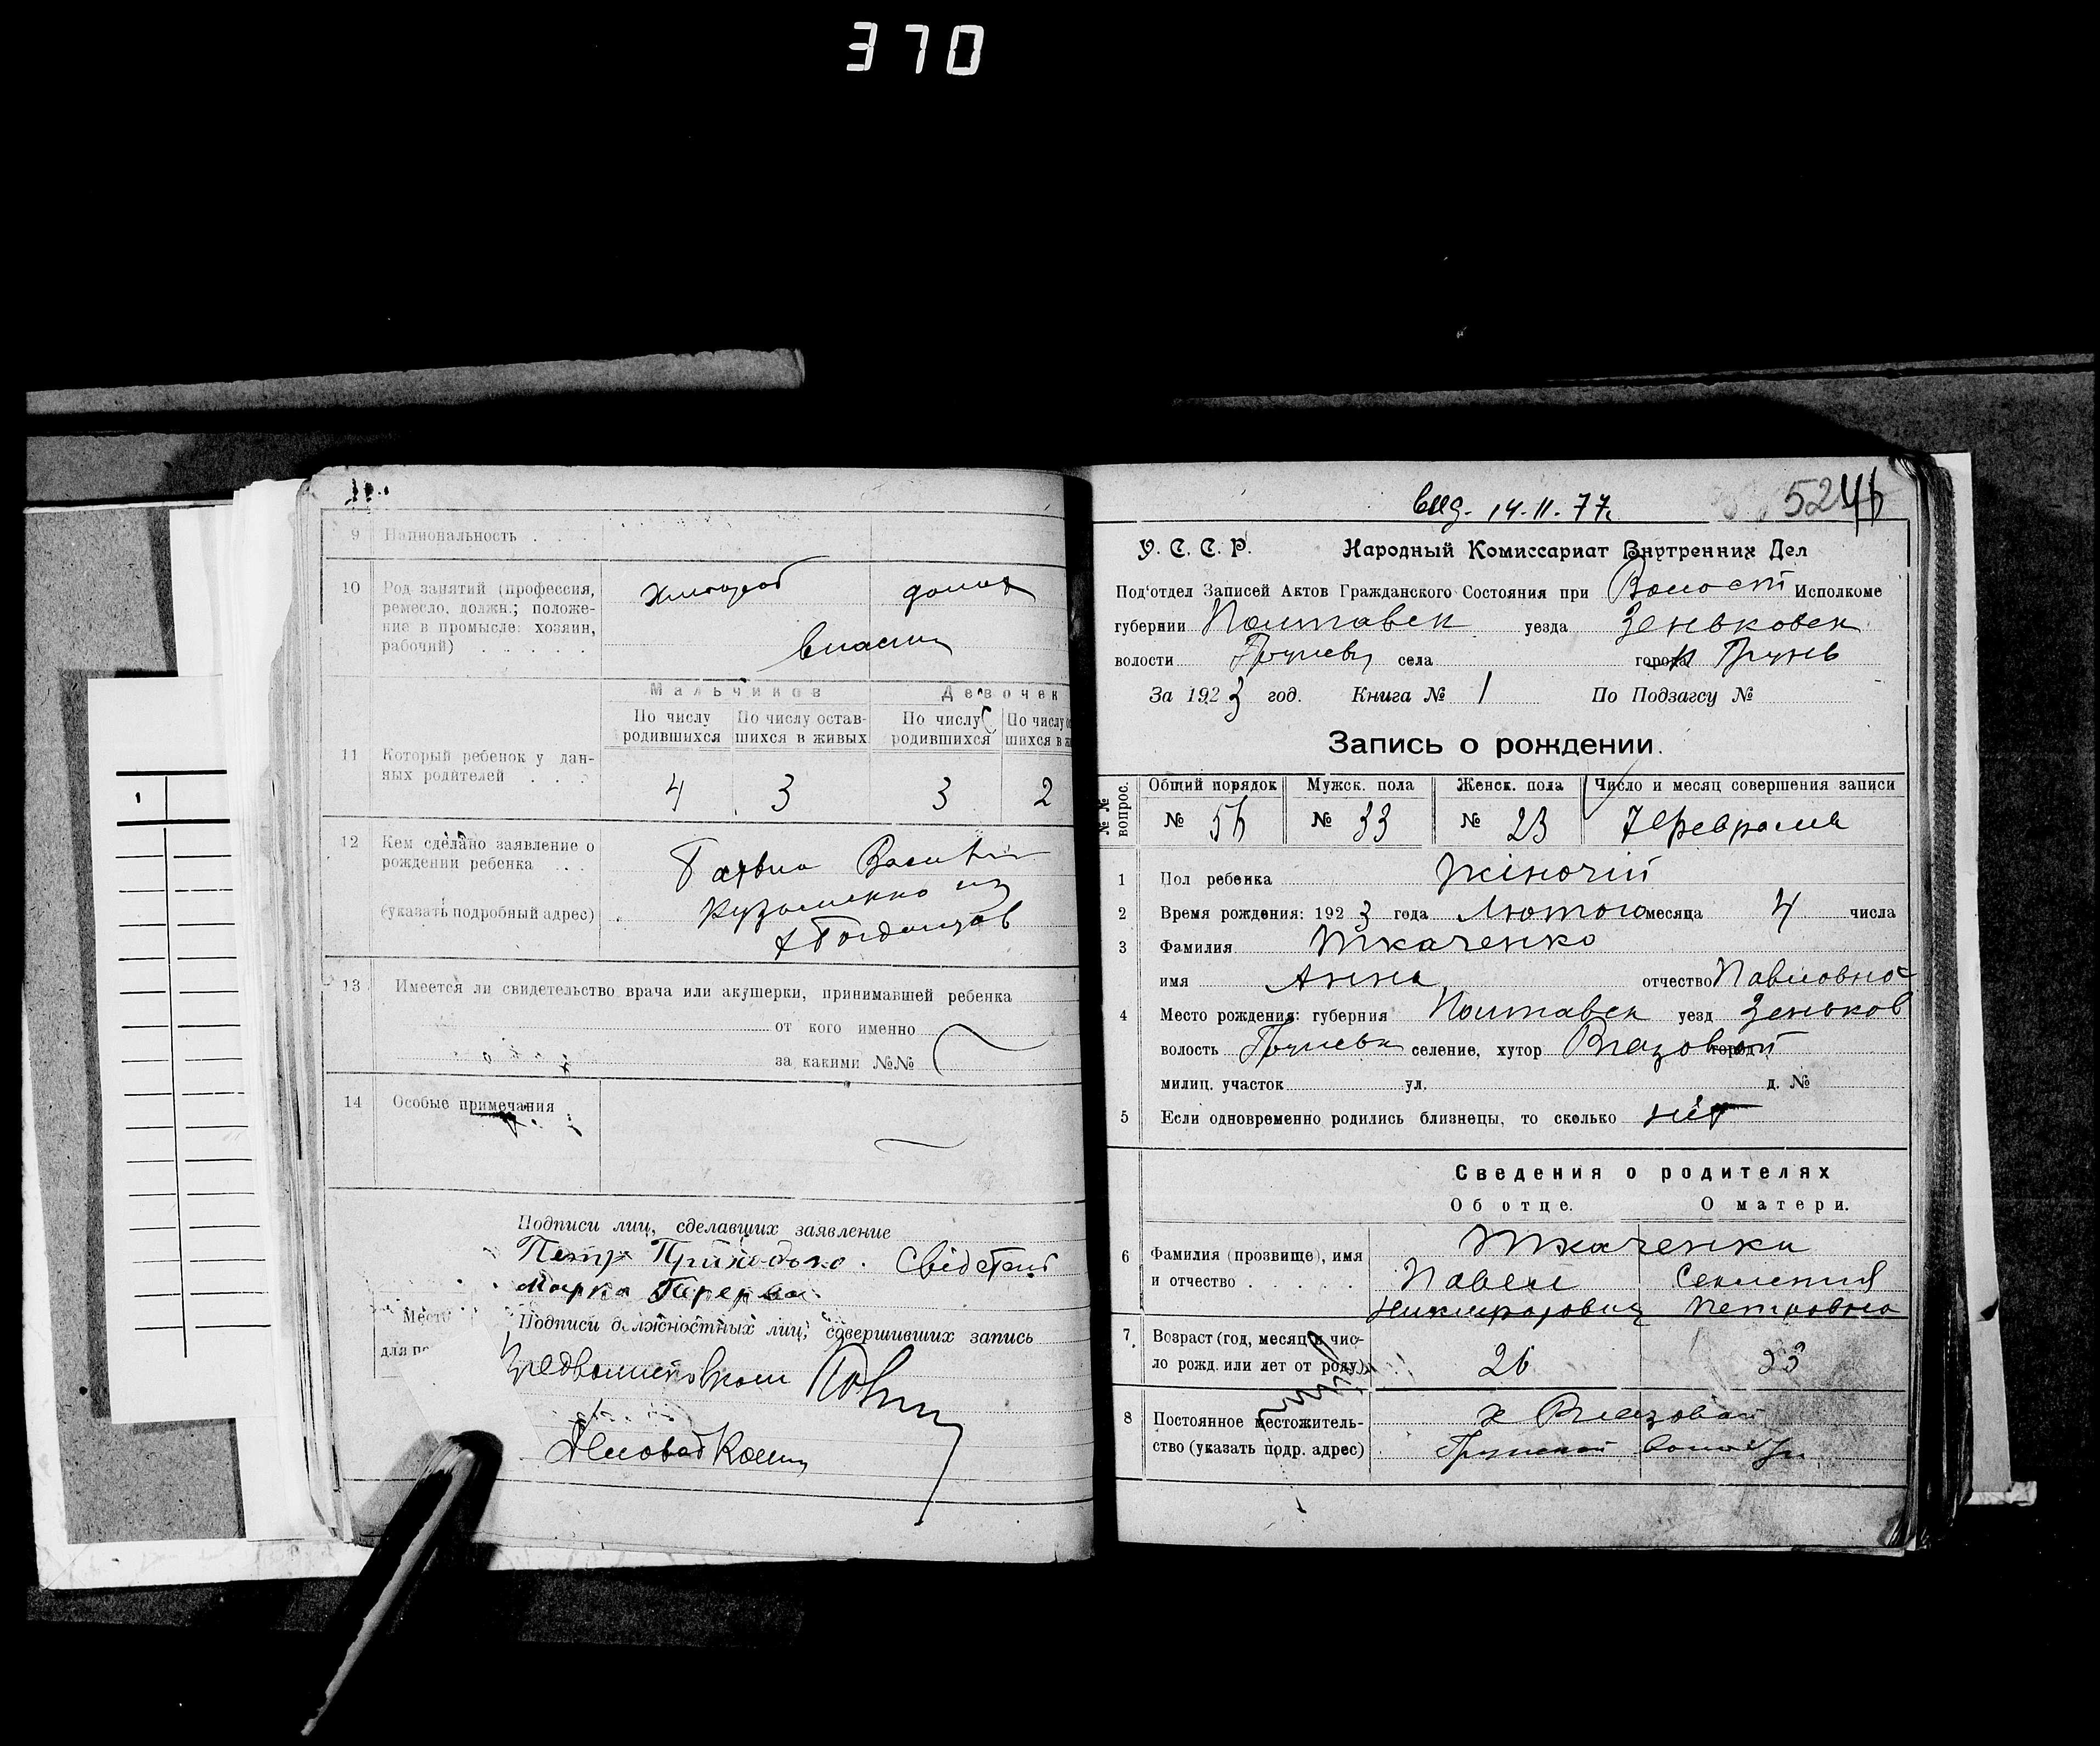 370
9 Национальность . . .
10 Род занятий (профессия,
ремесло, должн.; положе-
ние в промысле: хозяин,
рабочий) . . . . .
Хлебороб
Мальчиков Девочек
По числу родившихся
По числу остав-
шихся в живых
По числу родившихся
По числу
шихся в
11 Который ребенок у дан-
ных родителей . . .
4 3 3 2
12 Кем сделано заявление о
рождении ребенка . . .
(указать подробный адрес)
Кузьменко из
13 Имеется ли свидетельство врача или акушерки, принимавшей ребенка
от кого именно
за какими №№
14 Особые примечания
Подписи лиц, сделавших заявление
Петр Приходько. Свідетели
Марко Перерва
Место
для
Подписи должностных лиц, совершивших запись
Деловод
Вид. 14.II.77г.
524
У. С. С. Р. Народный Комиссариат Внутренних Дел
Под'отдел Записей Актов Гражданского Состояния при Волост Исполкоме
губернии Полтавск уезда Зеньковск
волости села города Грунь
За 1923 год. Книга № 1 По Подзагсу №
Запись о рождении.
№№ вопрос.
Общий порядок Мужск. пола Женск. пола Число и месяц совершения записи
№ 56 № 33 № 23 7 Февраля
1 Пол ребенка жіночій
2 Время рождения: 1923 года Лютого месяца 4 числа
3 Фамилия Ткаченко
имя Анна отчество Павловна
4 Место рождения: губерния Полтавск уезд Зеньков
волость селение, хутор Вязовой город
милиц. участок ул. д. №
5 Если одновременно родились близнецы, то сколько нет
Сведения о родителях
Об отце. О матери.
6 Фамилия (прозвище), имя
и отчество . . . . .
Ткаченки
Павел
Никифорович Петровна
7 Возраст (год, месяц и чис-
ло рожд. или лет от роду)
26 23
8 Постоянное местожитель-
ство (указать подр. адрес)
х Вязовой
Грунской волости